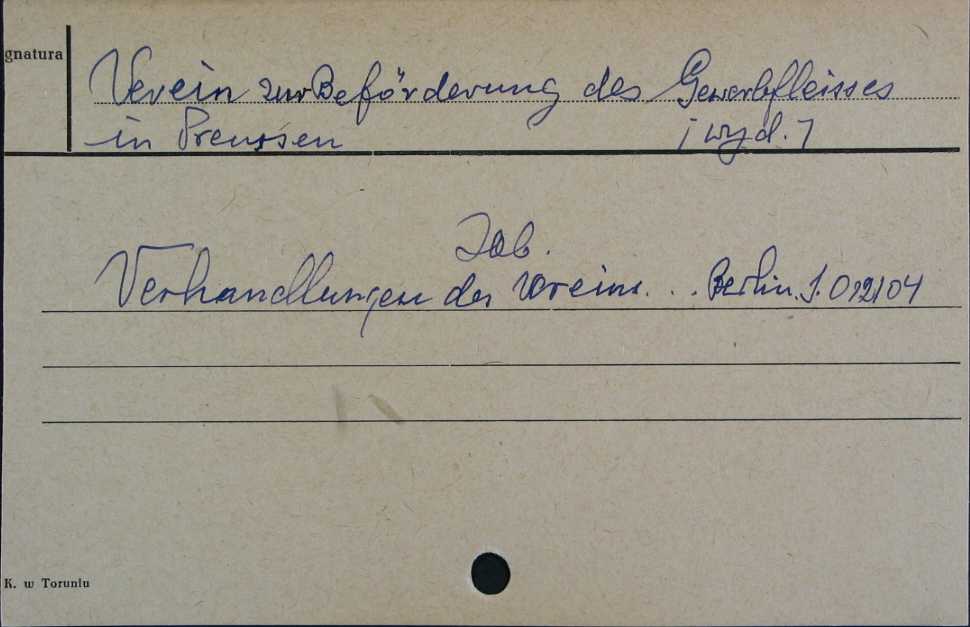 gnatura
Verein zur Beförderung des Gewerbfleisses
in Preussen [wyd.]
Zob.
Verhandlungen des Vereins... Berlin. S. 012104
K. w Toruniu